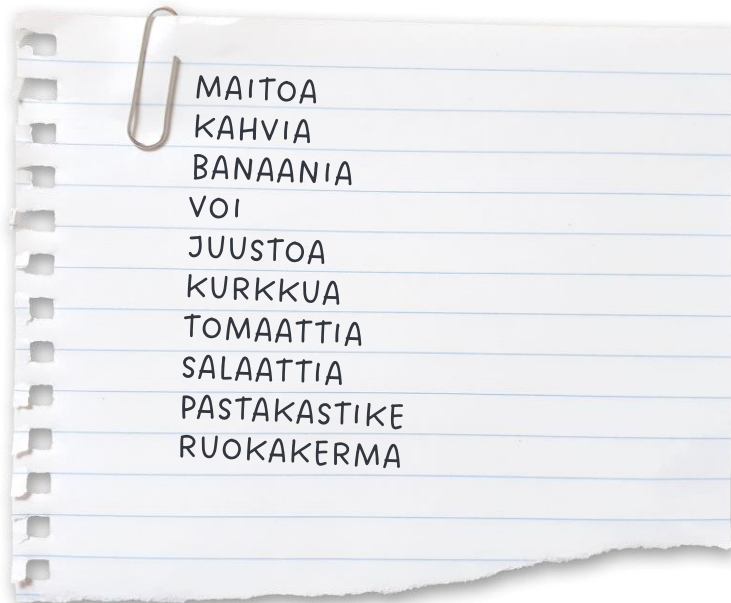 MAITOA
KAHVIA
BANAANIA
VOI
JUUSTOA
KURKKUA
TOMAATTIA
SALAATTIA
PASTAKASTIKE
RUOKAKERMA